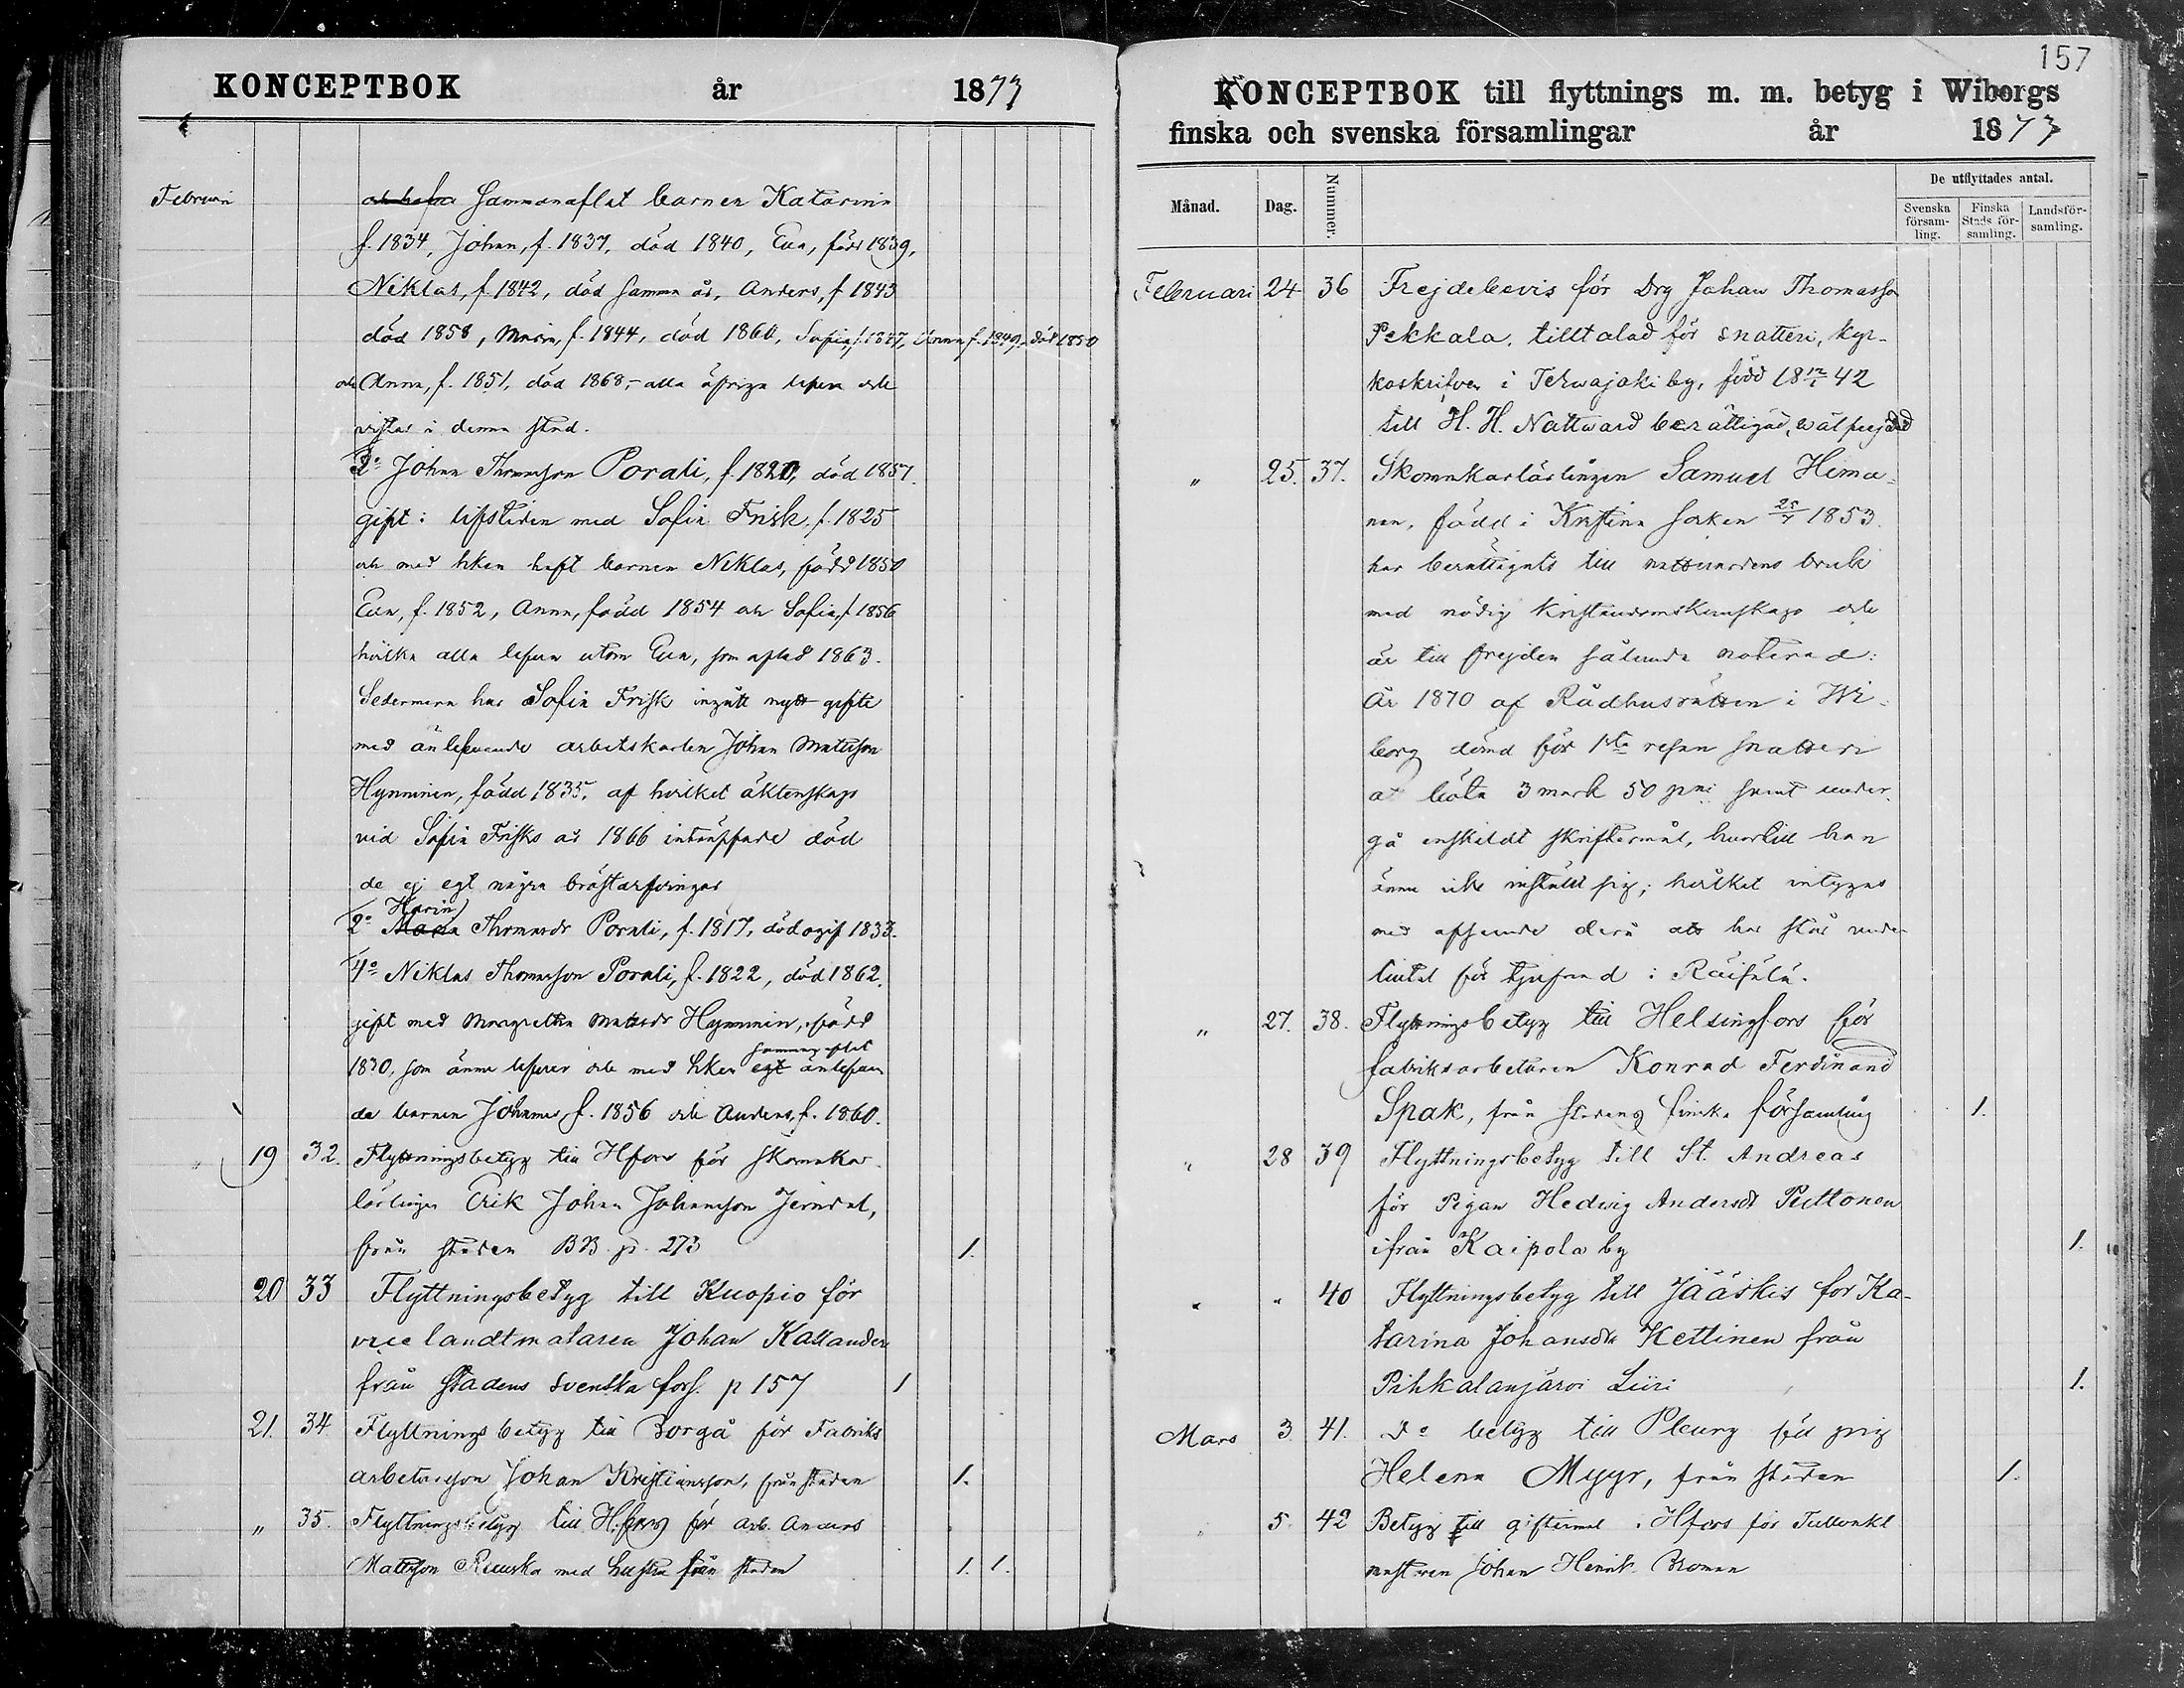 KONCEPTBOK år 1873
Februari
och hafva sammanaflat barnen Katarina
f. 1834, Johan, f. 1837, död 1840, Eva, född 1839,
Niklas, f. 1842, död samma år, Anders, f 1843
död 1858, Maria, f. 1844, död 1860, Sofia, f. 1847, Anna f. 1849, död 1850
och Anna, f. 1851, död 1868, - alla öfriga lefva och
vistas i denna stad.
2o Johan Thomasson Porali, f. 1820, död 1857.
gift i lifstiden med Sofia Frisk, f. 1825
och med hken haft barnen Niklas, född 1850
Eva, f. 1852, Anna, född 1854 och Sofia, f 1856
hvilka alla lefva utom Eva, som aflad 1863.
Sedermera har Sofia Frisk ingått nytt gifte
med änlefvande arbetskarlen Johan Matsson
Hynninen, född 1835, af hvilket äktenskap
vid Sofia Frisks år 1866 inträffade död
de ej egt några bröstarfvingar
Karin
2o Maria Thomasdr Porali, f. 1817, död ogift 1833.
4o Niklas Thomasson Porali, f. 1822, död 1862.
gift med Margaretha Matsdr Hynninen, född
sammanaflat
1830, som ännu lefver och med hken egt änlefvan
de barnen Johannes, f. 1856 och Anders, f. 1860.
19 32. Flyttningsbetyg till Hfors för skomakar
lärlingen Erik Johan Johansson Jerndal,
från staden BB. p. 273 1.
20 33 Flyttningsbetyg till Kuopio för
vice landtmätaren Johan Kallander
från stadens svenska förs. p 157 1
21. 34 Flyttningsbetyg till Borgå för Fabriks
arbetaresson Johan Kristiansson, från staden 1.
" 35. Flyttningsbetyg till Hfors för arb. Anders
Mattsson Ruuska med hustru från staden 1. 1.
157
KONCEPTBOK till flyttnings m. m. betyg i Wiborgs
finska och svenska församlingar år 1873
Månad. Dag. Nummer. De utflyttades antal.
Svenska försam-ling. Finska Stads för-samling. Landsför-samling.
Februari 24 36 Frejdebevis för Drg Johan Thomasson
Pekkala, tilltalad för snatteri, kyr-
koskrifven i Terwajoki by, född 18 12/1 42
till H. H. Nattward berättigad, wälfrejdad
" 25. 37. Skomakarlärlingen Samuel Hima-
nen, född i Kristina socken 25/7 1853.
har berättigats till nattvardens bruk
med nödig kristendomskunskap och
är till frejden sålunda noterad:
År 1870 af Rådhusrätten i Wi-
borg dömd för 1sta resan snatteri
at böta 3 mark 50 pni samt under-
gå enskildt skriftermål, hvartill han
ännu icke inställt sig; hvilket intygas
med afseende derå att han står under
tiltal för tjufnad i Räisälä.
" 27. 38. Flyttningsbetyg till Helsingfors för
fabriksarbetaren Konrad Ferdinand
Spak, från stadens finska församling 1.
" 28 39 Flyttningsbetyg till St. Andreas
för Pigan Hedvig Andersdr Puttonen
ifrån Kaipola by 1.
" " 40 Flyttningsbetyg till Jääskis för Ka-
tarina Johansdtr Kettinen från
Pihkalanjärvi Liiri 1.
Mars 3 41. Do betyg till Pleurg för pig
Helena Myyr, från staden 1.
" 5. 42 Betyg till giftermål i Hfors för Tullvakt
mästaren Johan Henrik Broman